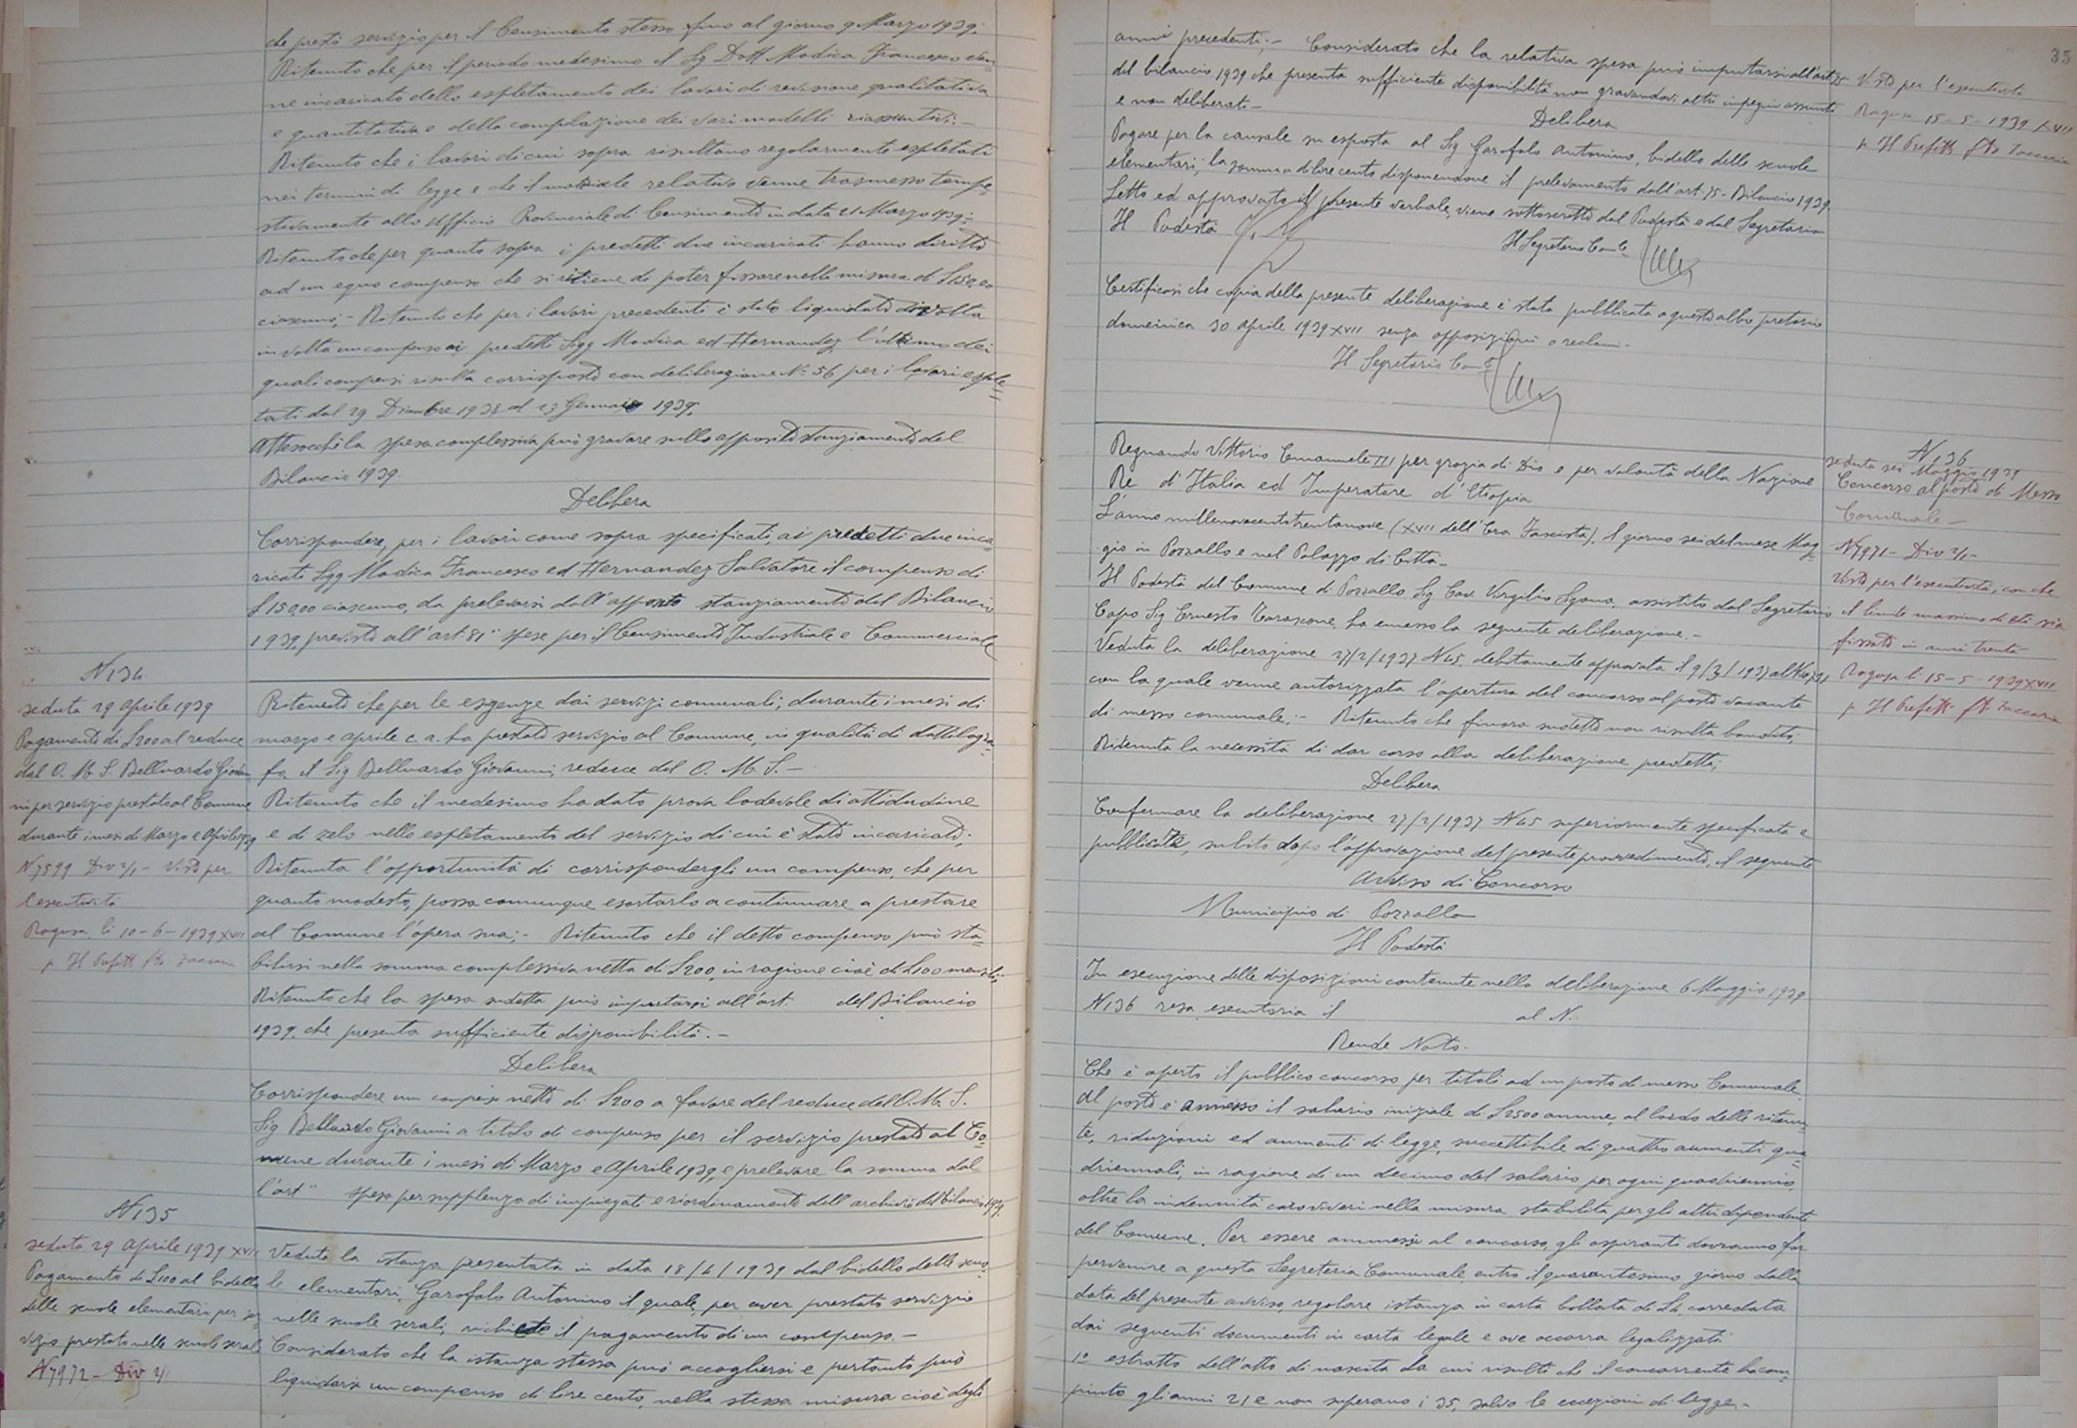 che prestò servizio per il Censimento stesso fino al giorno 9 Marzo 1939;
Ritenuto che per il periodo medesimo il Sig Dott Modica Francesco ven=
ne incaricato dello espletamento dei lavori di revisione qualitativa
e quantitativa e della compilazione dei vari modelli riassuntivi;—
Ritenuto che i lavori di cui sopra risultano regolarmente espletati
nei termini di legge e che il materiale relativo venne trasmesso tempe=
stivamente allo Ufficio Provinciale di Censimento in data 21 Marzo 1939;=
Ritenuto che per quanto sopra i predetti due incaricati hanno diritto
ad un equo compenso che si ritiene da poter fissare nella misura di £ 150,00
ciascuno;- Ritenuto che per i lavori precedenti è stato liquidato di volta
in volta un compenso ai predetti Sigg Modica ed Hernandez, l'ultimo dei
quali compensi risulta corrisposto con deliberazione N. 56 per i lavori esple=
tati dal 29 Dicembre 1938 al 23 Gennaio 1939.
Attesochè la spesa complessiva può gravare sullo apposito stanziamento del
Bilancio 1939
Delibera
Corrispondere, per i lavori come sopra specificati, ai predetti due inca=
ricati Sigg Modica Francesco ed Hernandez Salvatore il compenso di
£ 150,00 ciascuno, da prelevarsi dall'apposito stanziamento del Bilancio
1939, previsto all'art. 81" spese per il Censimento Industriale e Commerciale
N 134
seduta 29 Aprile 1939
Pagamento di £ 200 al reduce
dal O. M. S. Belluardo Giovan
ni per servizio prestato al Comune
durante i mesi di Marzo e Aprile 1939
N 7599 Div 2/1 - Visto per
l'esecutività
Ragusa li 10-6-1939 XVII
p Il Prefetto fto Zaccaria
Ritenuto che per le esigenze dai servizi comunali, durante i mesi di
marzo e aprile c. a. ha prestato servizio al Comune, in qualità di dattilogra=
fo, il Sig Belluardo Giovanni, reduce del O. M. S.—
Ritenuto che il medesimo ha dato prova lodevole di attitudine
e di zelo nello espletamento del servizio di cui è stato incaricato;
Ritenuta l'opportunità di corrispondergli un compenso, che per
quanto modesto, possa comunque esortarlo a continuare a prestare
al Comune l'opera sua;- Ritenuto che il detto compenso può sta=
bilirsi nella somma complessiva netta di £ 200, in ragione cioè di £ 100 mensili;
Ritenuto che la spesa sudetta può imputarsi all'art. del Bilancio
1939, che presenta sufficiente disponibilità.—
Delibera
Corrispondere un compenso netto di £ 200 a favore del reduce del O. M. S.
Sig Belluardo Giovanni a titolo di compenso per il servizio prestato al Co=
mune durante i mesi di Marzo e Aprile 1939, e prelevare la somma dal
l'art " spesa per supplenza di impiegati e riordinamento dell'archivio del bilancio 1939
N 135
seduta 29 Aprile 1939 XVII
Pagamento di £ 100 al bidello
delle scuole elementari per ser
vizio prestato nelle scuole serali
N 7972 - Div 2/1
Veduta la istanza presentata in data 18/4/1939 dal bidello delle scuo=
le elementari, Garofalo Antonino il quale, per aver prestato servizio
nelle scuole serali, richiede il pagamento di un compenso.—
Considerato che la istanza stessa può accogliersi e pertanto può
liquidarsi un compenso di lire cento, nella stessa misura cioè degli
35
anni precedenti;— Considerato che la relativa spesa può imputarsi all'art. 75
del bilancio 1939 che presenta sufficiente disponibilità non gravandovi altri impegni assunti
e non deliberati—
Delibera
Pagare per la causale su esposta al Sig Garofalo Antonino, bidello delle scuole
elementari, la somma di lire cento disponendone il prelevamento dall'art. 75 - Bilancio 1939.
Letto ed approvato il presente verbale, viene sottoscritto dal Podestà e dal Segretario
Il Podestà
Il Segretario Com.le
Visto per l'esecutività
Ragusa 15-5-1939 XVII
p Il Prefetto fto Zaccaria
Certificasi che copia della presente deliberazione è stata pubblicata a questo albo pretorio
domenica 30 Aprile 1939 XVII senza opposizioni o reclami.
Il Segretario Com.le
N 136
seduta sei Maggio 1939
Concorso al posto di Messo
Comunale—
N 7971 - Div 2/1-
Visto per l'esecutività, con che
il limite massimo di età sia
fissato in anni trenta
Ragusa li 15-5-1939 XVII
p Il Prefetto fto Zaccaria
Regnando Vittorio Emanuele III per grazia di Dio e per volontà della Nazione
Re d'Italia ed Imperatore d'Etiopia
L'anno millenovecentotrentanove (XVII dell'Era Fascista), il giorno sei del mese Mag=
gio in Pozzallo e nel Palazzo di Città—
Il Podestà del Comune di Pozzallo Sig Cav. Virgilio Sgana, assistito dal Segretario
Capo Sig Ernesto Tarascone, ha emesso la seguente deliberazione.—
Veduta la deliberazione 27/2/1937 N 45, debitamente approvata il 9/3/1937 al N
con la quale venne autorizzata l'apertura del concorso al posto vacante
di messo comunale;— Ritenuto che finora sudetto non risulta bandito;
Ritenuta la necessità di dar corso alla deliberazione predetta;
Delibera
Confermare la deliberazione 27/2/1937 N 45 superiormente specificata e
pubblicare, subito dopo l'approvazione del presente provvedimento, il seguente
Avviso di Concorso
Municipio di Pozzallo
Il Podestà
In esecuzione delle disposizioni contenute nella deliberazione 6 Maggio 1939
N 136 resa esecutoria il al N.
Rende Noto.
Che è aperto il pubblico concorso per titoli ad un posto di messo Comunale.
Al posto è annesso il salario iniziale di £ 3500 annue, al lordo delle ritenu=
te, riduzioni ed aumenti di legge, suscettibile di quattro aumenti qua=
driennali, in ragione di un decimo del salario per ogni quadriennio,
oltre la indennità caro viveri nella misura stabilita per gli altri dipendenti
del Comune. Per essere ammessi al concorso, gli aspiranti dovranno far
pervenire a questa Segreteria Comunale, entro il quarantesimo giorno dalla
data del presente avviso, regolare istanza in carta bollata di £ 4 corredata
dai seguenti documenti in carta legale e ove occorra legalizzati
1° estratto dell'atto di nascita da cui risulti che il concorrente ha com=
piuto gli anni 21 e non superano i 35, salvo le eccezioni di legge.—